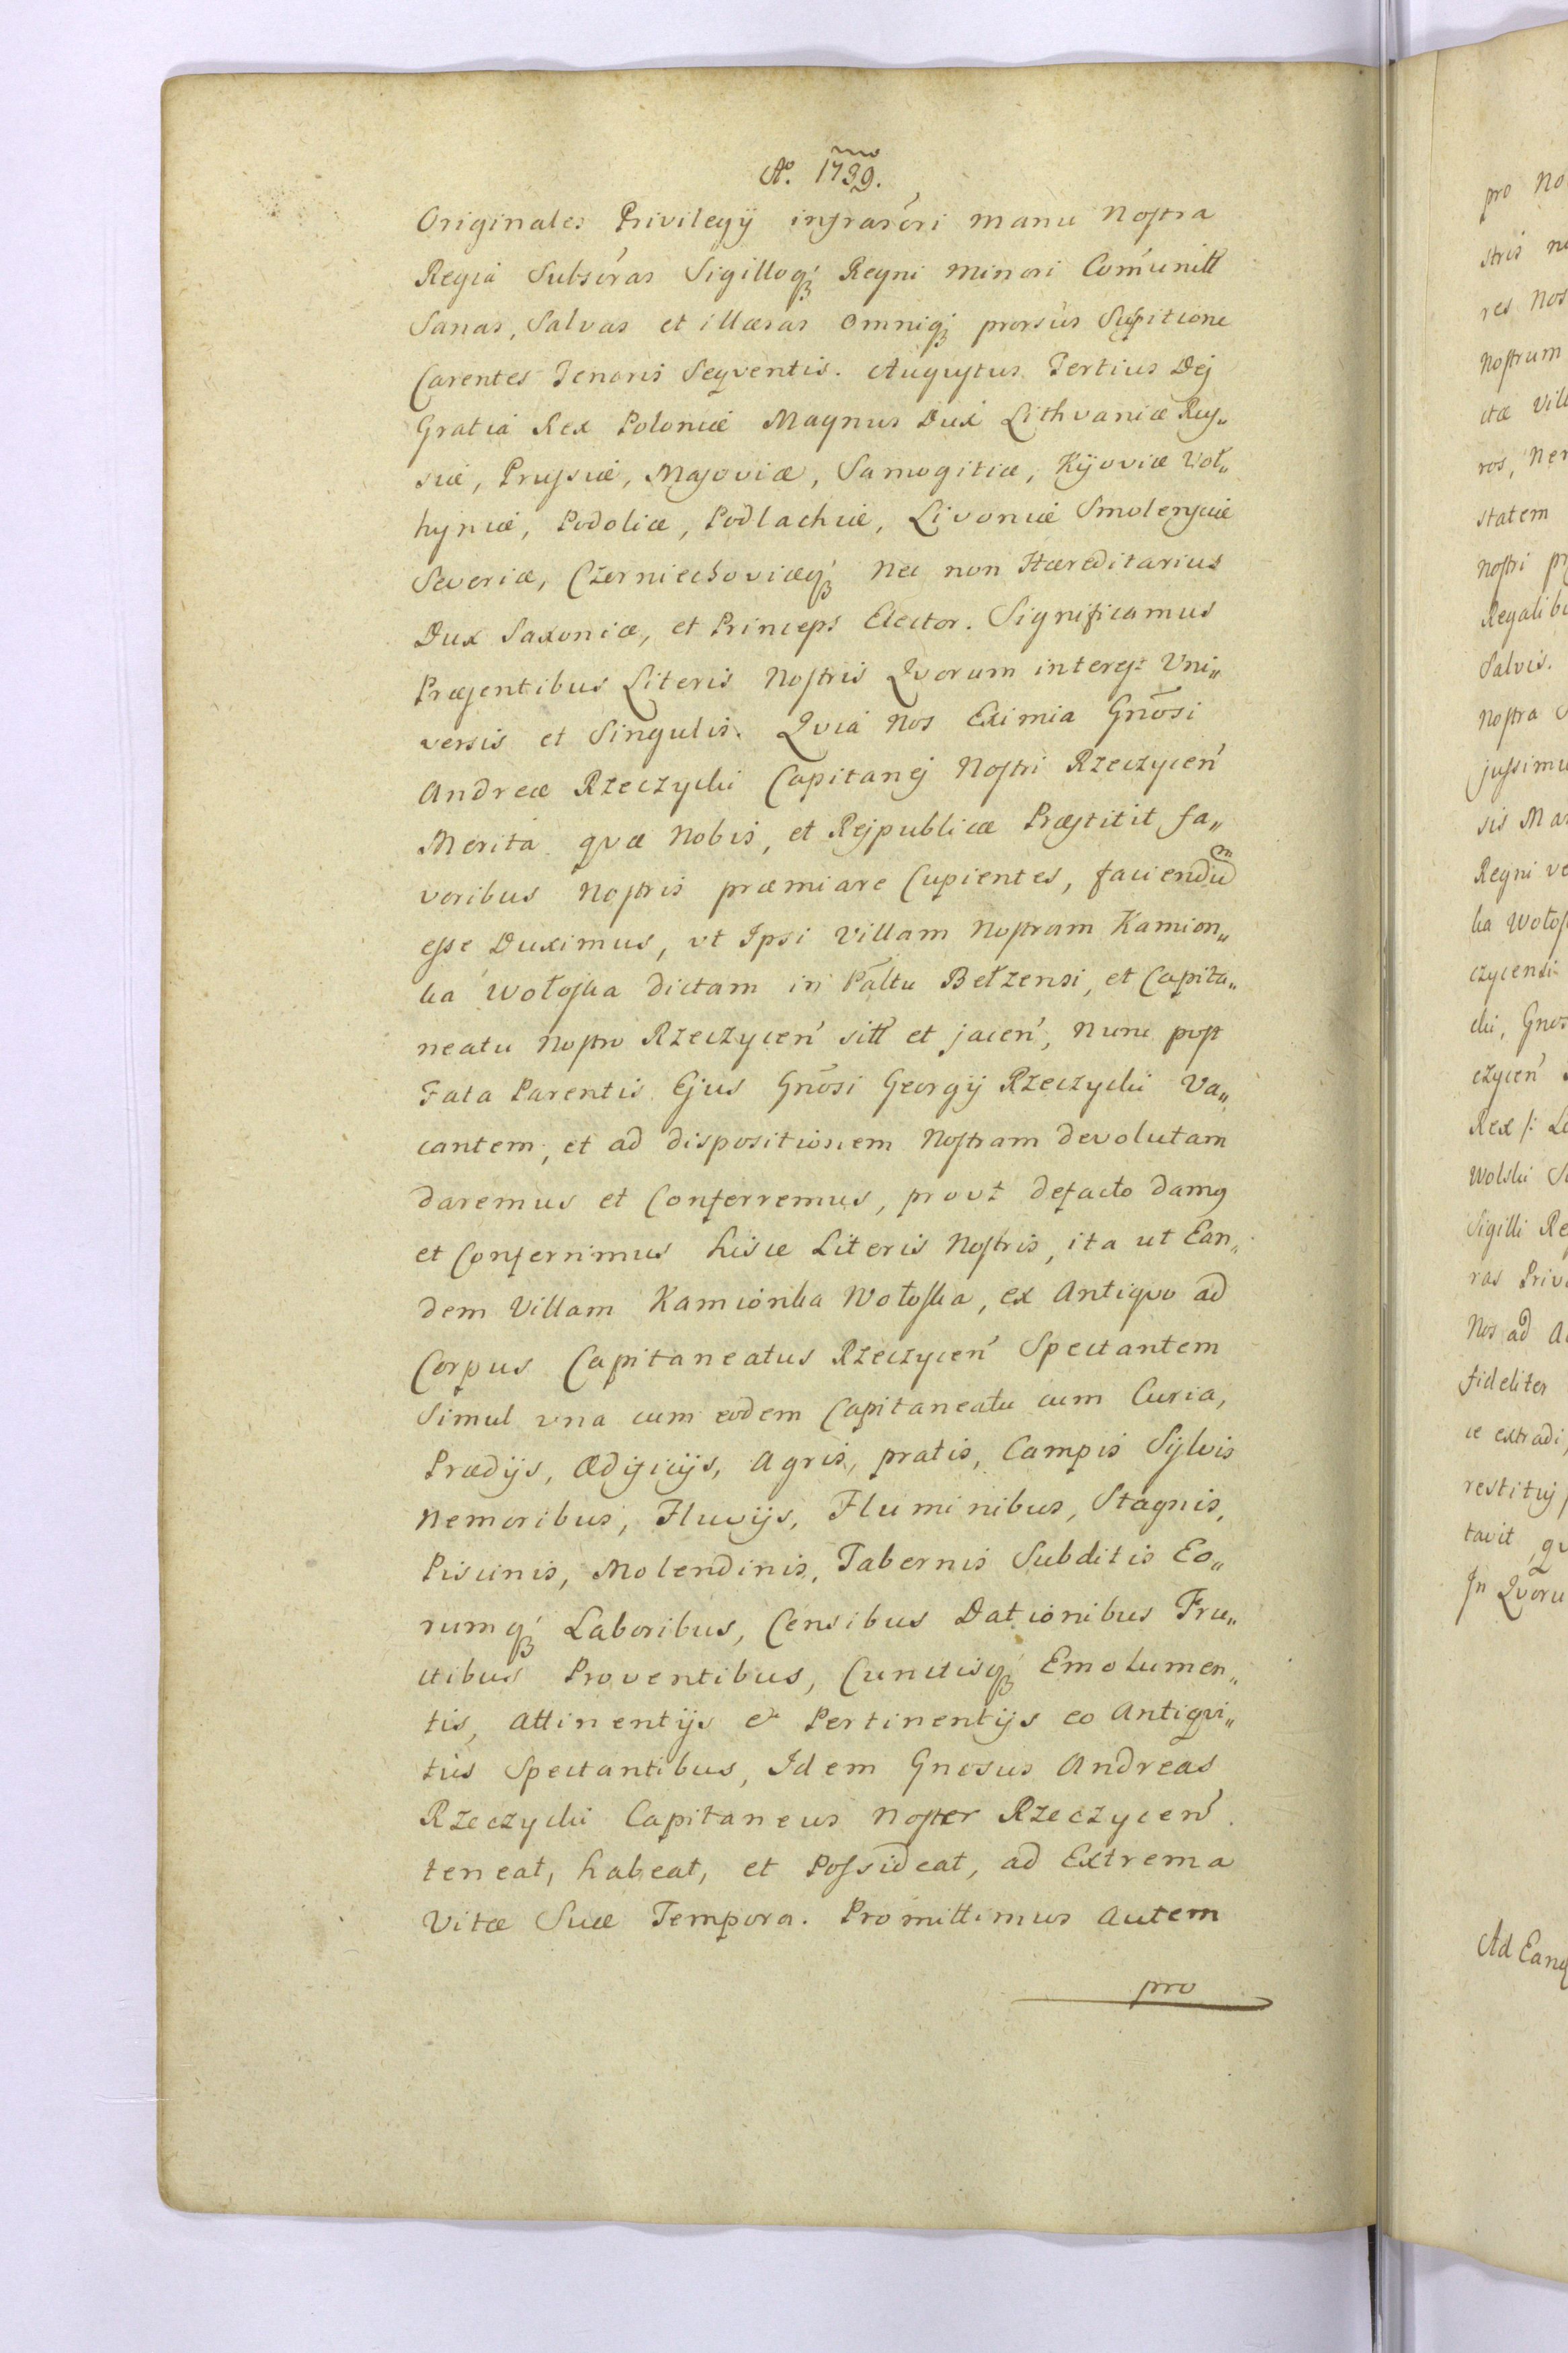 Aō. 1739. mo
Originales Privilegij infrascri manu Nostra
Regia Subscras Sigilloq; Regni Minori Comunitt
Sanas, Salvas et illæsas Omniq; prorsus Suspitione
Carentes Tenoris Seqventis. Augustus Tertius Dej
Gratia Rex Poloniæ Magnus Dux Lithvaniæ Rus„
siæ, Prussiæ, Masoviæ, Samogitiæ, Kijoviæ Voł„
hyniæ, Podoliæ, Podlachiæ, Livoniæ Smolensciæ
Severiæ, Czerniechoviæq; Nec non Hæreditarius
Dux Saxoniæ, et Princeps Elector. Significamus
Præsentibus Literis Nostris Qvorum interest Uni„
versis et Singulis. Qvia Nos Eximia Gnōsi
Andreæ Rzeczycki Capitanej Nostri Rzeczyceń
Merita qvæ Nobis, et Rejpublicæ Præstitit fa„
voribus Nostris præmiare Cupientes, faciendum
esse Duximus, vt Ipsi Villam Nostram Kamion„
ka Wołoska dictam in Pāltu Bełzensi, et Capita„
neatu Nostro Rzeczyceń sitt et jaceń, Nunc post
Fata Parentis Ejus Gnōsi Georgij Rzeczycki Va„
cantem, et ad dispositionem Nostram devolutam
daremus et Conferremus, provt defacto damq
et Conferrimus hisce Literis Nostris, ita ut Ean„
dem Villam Kamionka Wołoska, ex Antiqvo ad
Corpus Capitaneatus Rzeczyceń Spectantem
Simul vna cum eodem Capitaneatu cum Curia,
Prædijs, Ædificijs, Agris, pratis, Campis Sylvis
Nemoribus, Fluvijs, Fluminibus, Stagnis,
Piscinis, Molendinis, Tabernis Subditis Eo„
rumq; Laboribus, Censibus Dationibus Fru„
ctibus Proventibus, Cunctisq; Emolumen„
tis, Attinentijs & Pertinentijs eo Antiqvi„
tus Spectantibus, Idem Gnosus Andreas
Rzeczycki Capitaneus Noster Rzeczyceń
teneat, habeat, et Possideat, ad Extrema
Vitæ Suæ Tempora. Promittimus Autem
pro
pro
stris
res Nos
Nostrum
ctæ Vill
ros,
statem
Nostri
Regalib
Salvis.
Nostra
jussimu
sis Ma
Regni ve
ka Wołos
czycensi
cki, Gnos
czyceń
Rex /:
Wolski
Sigilli Re
ras Privi
Nos ad
fideliter
ce extradi,
restituj
tavit, qv
In Qvoru
Ad Eanq